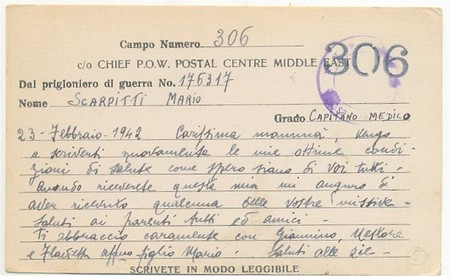 Campo Numero 306
306
c/o CHIEF P.O.W. POSTAL CENTRE MIDDLE EAST
Dal prigioniero di guerra No. 176317
Nome SCARPITTI MARIO
Grado CAPITANO MEDICO
23-Febbraio-1942 Carissima mamma, vengo
a scriverti nuovamente le mie ottime condi-
zioni di salute come spero siano di voi tutti.
Quando riceverete questa mia mi auguro di
aver ricevuto qualcuna delle vostre missive
saluti ai parenti tutti ed amici.
Ti abbraccio caramente con Giannino, Nestore
e aff.mo figlio Mario. Saluti alle
SCRIVETE IN MODO LEGGIBILE